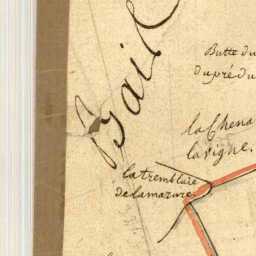 Bail
Butte du
du pré du
la Chena
la vigne.
la tremblaie
de la mazure